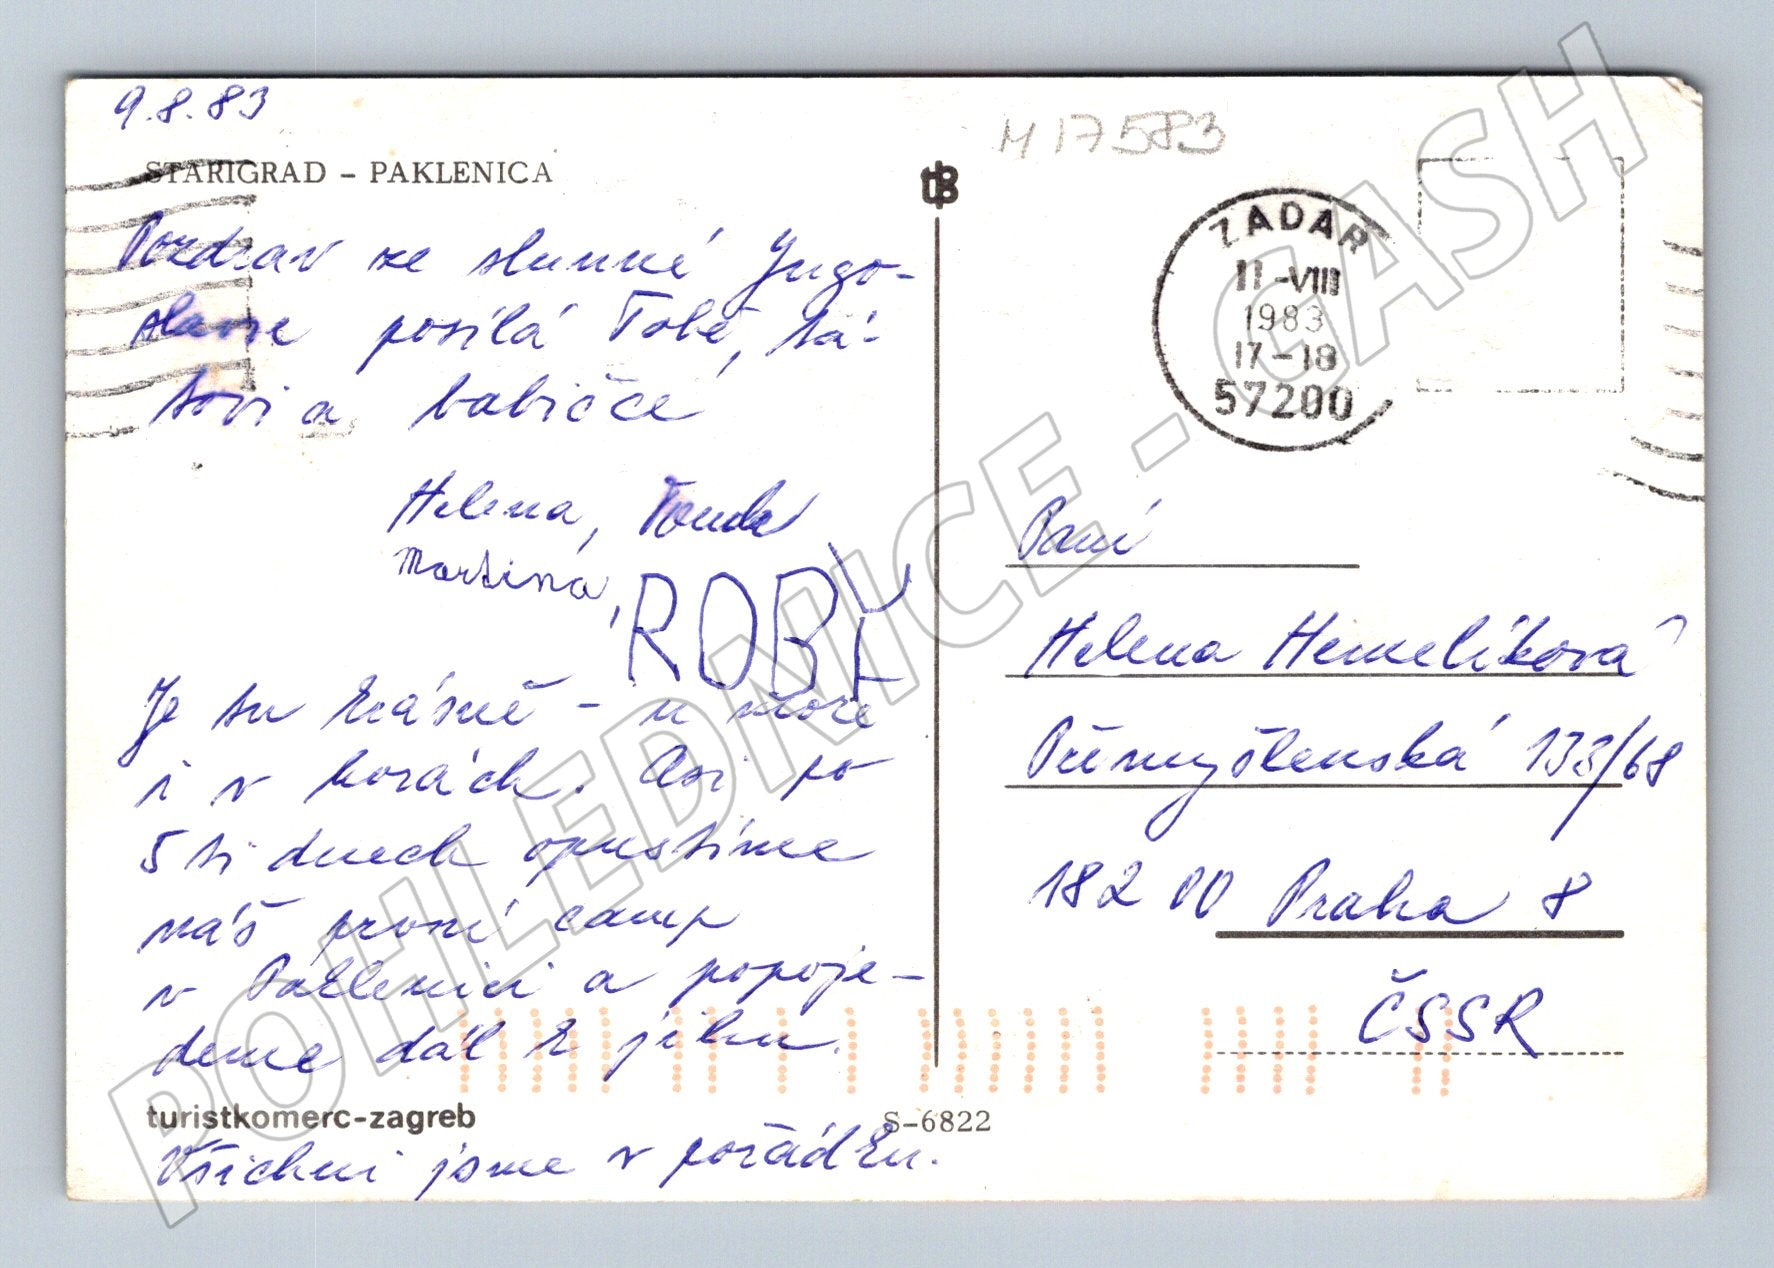 9.8.83
M17583
STARIGRAD – PAKLENICA
Pozdrav ze slunné Jugo-
slavie posílá Tobě, tá-
tovi a babičce
Helena, Tonda
Martina,
ROBY
Je tu krásně – u moře
i v horách. Asi po
5ti dnech opustíme
náš první camp
v Paklenici a popoje-
deme dál k jihu.
turistkomerc-zagreb
S-6822
Všichni jsme v pořádku.
ZADAR
11-VIII
1983
17-18
57200
Paní
Helena Hemelíková
Přemyšlenská 133/68
182 00 Praha 8
ČSSR
POHLEDNICE - GASH